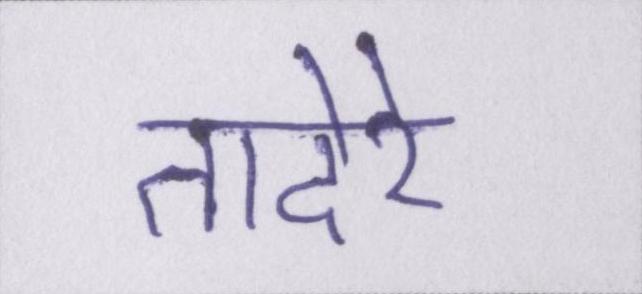 तादेरे